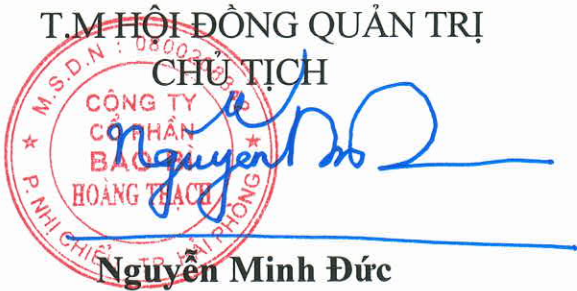 T.M HỘI ĐỒNG QUẢN TRỊ
CHỦ TỊCH
M.S.D.N : 0800
CÔNG TY
CỔ PHẦN
BAO BÌ
HOÀNG THẠCH
P. NHỊ CHIỂU TP. HẢI PHÒNG
Nguyễn
Nguyễn Minh Đức